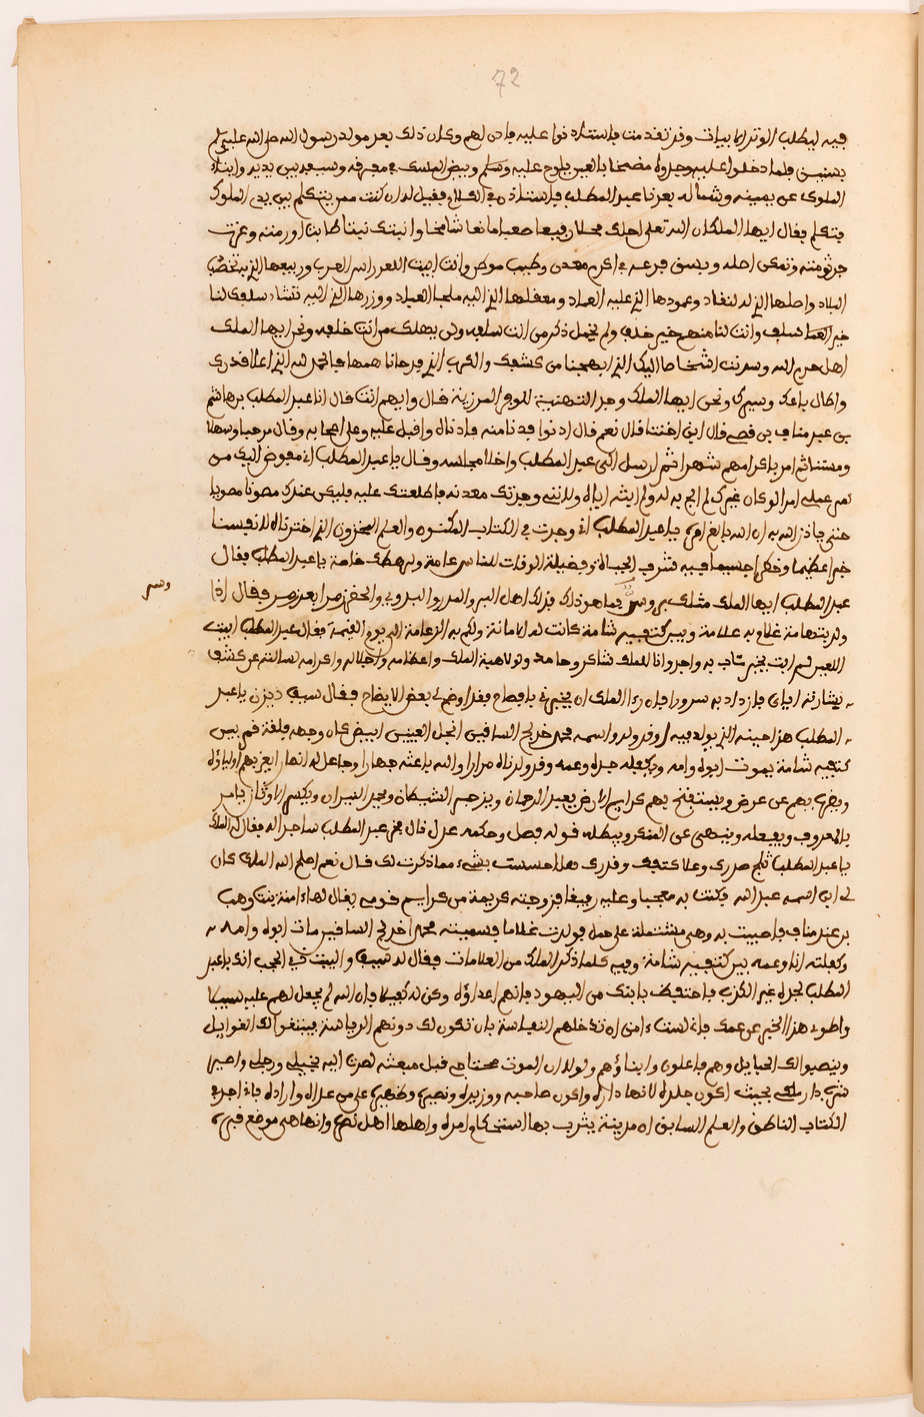 72
فيه ليطلب الوتر الابيات وقد تقدمت فاستاذنوا عليه فاذن لهم وكان ذلك بعد مولد رسول الله صلى الله عليه وسلم
بسنتين فلما دخلوا عليه وجدوه مضمخا بالعبير يلوح وبيض المسك في مفرقه وسيفه بين يديه وابناء
الملوك عن يمينه وشماله بعدنا عبد المطلب فاستاذن في الكلام فقيل له ان كنت ممن يتكلم بين يدي الملوك
فتكلم فقال ايها الملك ان الله تعلى احلك محلا رفيعا صعبا مانعا شامخا وانبتك نباتا طابت ارومته وعزت
جرثومته وتمكن اصله وبسق فرعه في اكرم معدن وطيب موطن وانت ابيت اللعن راس العرب وربيعها الذي به تخصب
البلاد واصلها الذي له تنقاد وعمودها الذي عليه العماد ومعقلها الذي اليه ملجا العباد ووزرها الذي اليه سلفك لنا
خير سلف وانت لنا منهم خير خلف ولم يخمل ذكر من انت سلفه ولن يهلك من انت خلفه ونحن ايها الملك
اهل حرم الله وسدنت اشخصنا اليك الذي ابهجنا من كشف والكرب الذي فدحنا
ونحن ايها الملك وفد التهنية لا وفد المرزية قال وايهم انت قال انا عبد المطلب بن هاشم
بن عبد مناف بن قصي قال ابن اختنا قال نعم قال ادنوا فدنا منه فادناه واقبل عليه وعلى اصحابه وقال مرحبا وسهلا
ثم امر باكرامهم شهرا ثم ارسل الى عبد المطلب واخلا مجلسه وقال يا عبد المطلب اني مفوض اليك من
علمي امرا لو كان غيرك لم ابح به له ولم ايثره اياه ولاكنني وجدتك معدنه فاطلعتك عليه فليكن عندك مصونا
حتى ياذن الله به ان الله بالغ امره يا عبد المطلب اني وجدت في الكتاب المكنون والعلم المخزون الذي اخترناه لانفسنا
خبرا عظيما وخطرا جسيما فيه شرف الحياة وفضيلة الوفات للناس عامة ولرهطك خاصة يا عبد المطلب فقال
عبد المطلب ايها الملك مثلك بر وسر فما هو ذلك فداك اهل البر والمدر والبدو والحضر زمرا بعد زمر فقال اذا
وسر
ولد بتهامة غلام به علامة وبين كتفيه شامة كانت له الامانة ولكم به الزعامة الى يوم القيمة فقال عبد المطلب ابيت
اللعن لقد ابت بخبر ماب به وافد وانا للملك شاكر وحامد ولولا هيبة الملك واعظامه واجلاله واكرامه لسالته عن كشف
بشارته اياي فازداد به سرورا فان را الملك ان يخبرني بافصاح فقد اوضح لي بعض الايضاح فقال سيف ذي يزن يا عبد
المطلب هذا حينه الذي يولد فيه او قد ولد واسمه محمد خدلج الساقين انجل العينين ابيض كان وجهه فلقة قمر بين
كتفيه شامة يموت ابوه وامه ويكفله جده وعمه وقد ولدناه مرارا والله باعثه جهارا وجاعل له انصارا يعز بهم اولياؤه
ويضرب بهم عن عرض ويستفتح بهم كرايم الارض يعبد الرحمان ويزجر الشيطان ويخمد النيران ويكسر الاوثان يامر
بالمعروف ويفعله وينهى عن المنكر ويبطله قوله فصل وحكمه عدل قال فخر عبد المطلب ساجدا له فقال له الملك
يا عبد المطلب ثلج صدرك وعلا كعبك فهل احسست بشيء مما ذكرت لك قال نعم اصلح الله الملك كان
لي ابن اسمه عبد الله وكنت به معجبا وعليه رفيقا فزوجته كريمة من كرايم قومه يقال لها ءامنة بنت وهب
بن عبد مناف فاصيبت به وهي مشتملة على حمل فولدت غلاما فسميته محمدا خدلج الساقين مات ابوه وامه
وكفلته انا وعمه بين كتفيه شامة وفيه كلما ذكر الملك من العلامات فقال له سيف والبيت ذي الحجب انك يا عبد
المطلب لجده غير الكذب فاحتفظ بابنك من اليهود فانهم اعداؤه وكن له كفيلا فان الله لم يجعل لهم عليه سبيلا
واطوي هذا الخبر عن من معك فاني لست ءامن ان تدخلهم النفاسة بان تكون لك دونهم الرياسة فيبتغوا لك الغوايل
وينصبوا لك الحبايل وهم فاعلون وابناؤهم ولولا ان الموت مجتاحي قبل مبعثه لصرت اليه بخيلي ورجلي واصير
يثرب دار ملكي بحيث اكون لانها داره واكون صاحبه ووزيره ونصيره وظهيره على من عداه واراده فاني اجد في
الكتاب الناطق والعلم السابق ان مدينة يثرب بها استحكام امره واهلها اهل نصره وانها هي موضع قبره